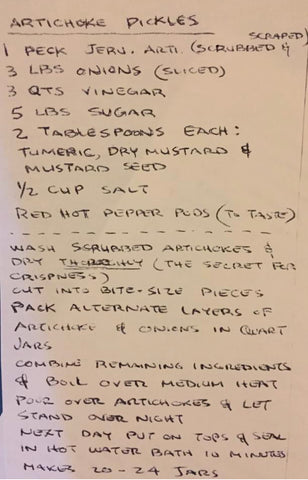 ARTICHOKE PICKLES
1 PECK JERU. ARTI. (SCRUBBED & SCRAPED)
3 LBS ONIONS (SLICED)
3 QTS VINEGAR
5 LBS SUGAR
2 TABLESPOONS EACH:
TUMERIC, DRY MUSTARD &
MUSTARD SEED
1/2 CUP SALT
RED HOT PEPPER PODS (TO TASTE)
WASH SCRUBBED ARTICHOKES &
DRY THOROUGHLY (THE SECRET FOR
CRISPNESS)
CUT INTO BITE-SIZE PIECES
PACK ALTERNATE LAYERS OF
ARTICHOKE & ONIONS IN QUART
JARS
COMBINE REMAINING INGREDIENTS
& BOIL OVER MEDIUM HEAT
POUR OVER ARTICHOKES & LET
STAND OVER NIGHT
NEXT DAY PUT ON TOPS & SEAL
IN HOT WATER BATH 10 MINUTES
MAKES 20-24 JARS